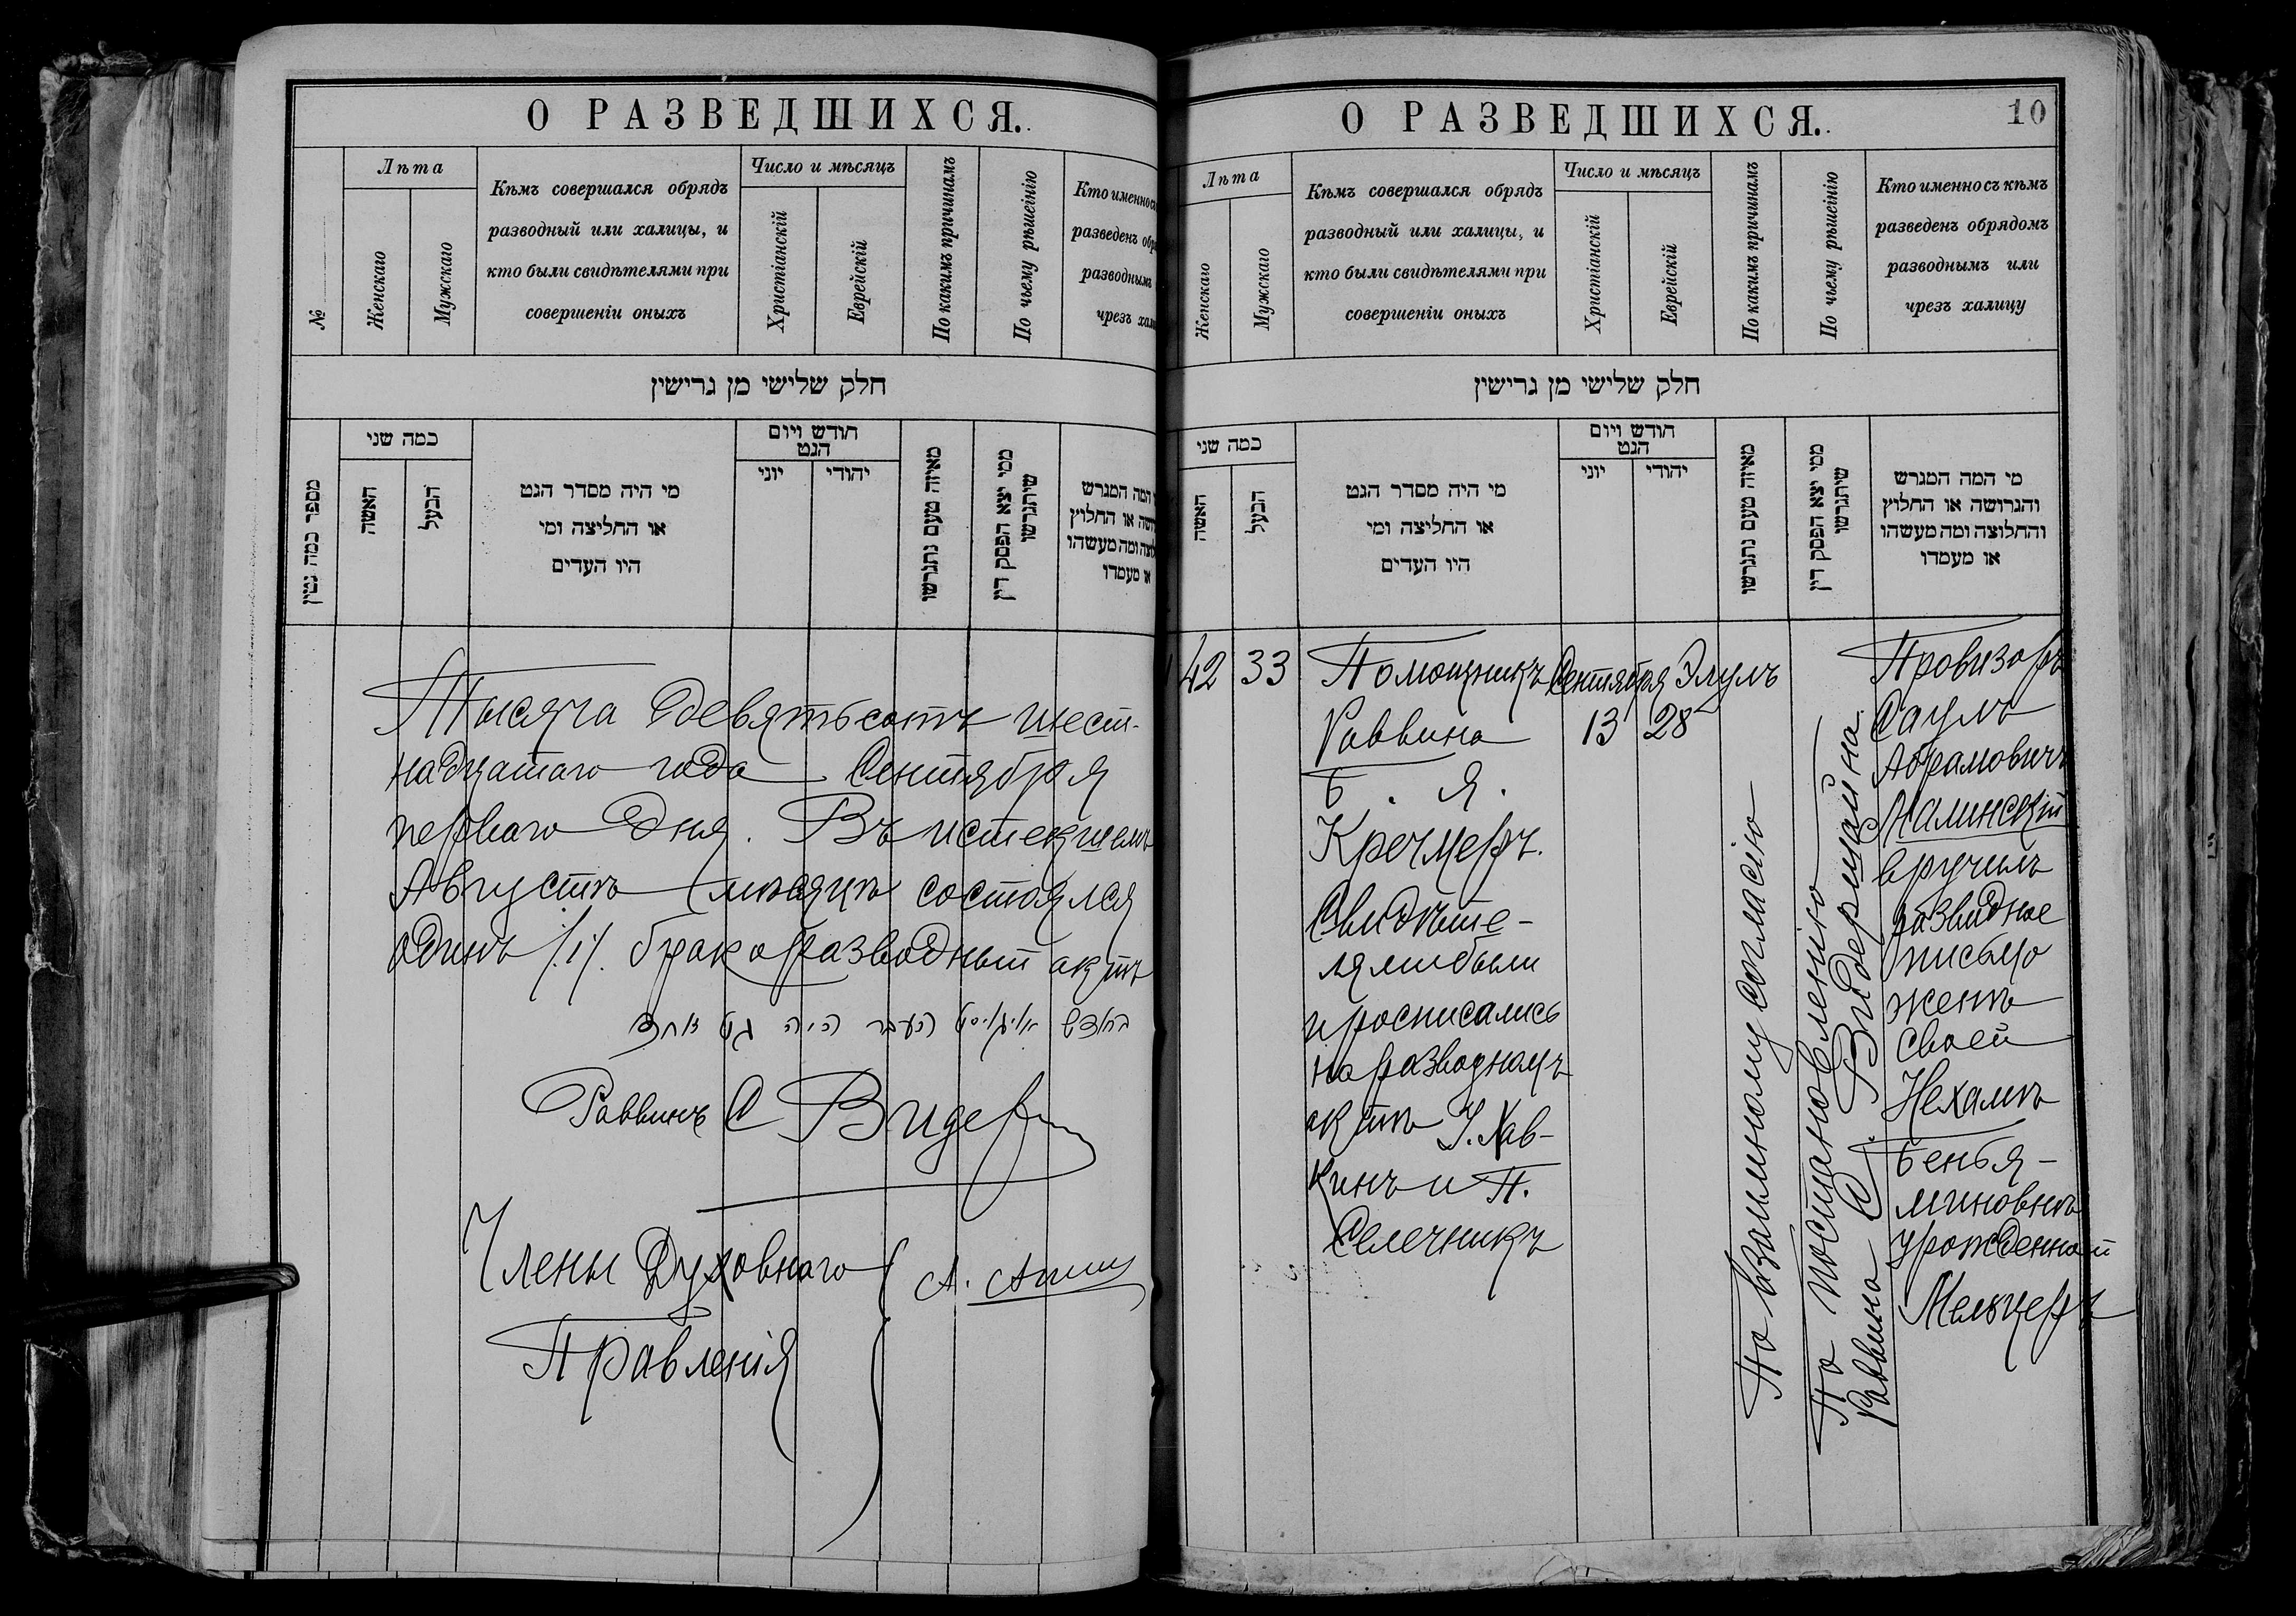 О РАЗВЕДШИХСЯ.
№
Лѣта
Женскаго
Мужскаго
Кѣмъ совершался обрядъ
разводный или халицы, и
кто были свидѣтелями при
совершеніи оныхъ
Число и мѣсяцъ
Христіанскій
Еврейскій
По какимъ причинамъ
По чьему рѣшеінію
Кто именно съ
разведенъ обр
разводнымъ
чрезъ хали
חלק שלישי מן גרישין
מספר כמה גטין
כמה שני
האשה
הבעל
מי היה מסדר הגט
או החליצה ומי
היו העדים
חודש ויום
הגט
יוני
יהודי
מאיזה טעם נתגרשו
ממי יצא הפסק דין
שיתגרשו
המה המגרש
ושה או החלוץ
לוצה ומה מעשהו
או מעמדו
Тысяча девятьсотъ шест-
надцатаго года Сентября
перваго дня. Въ истекшемъ
Августѣ мѣсяцѣ состоялся
одинъ /.1/. бракоразводный актъ
בחודש אויגוסט העבר היה גט אחד
Раввинъ С Видер
Члены Духовнаго
Правленія
О РАЗВЕДШИХСЯ.
10
Лѣта
Женскаго
Мужскаго
Кѣмъ совершался обрядъ
разводный или халицы, и
кто были свидѣтелями при
совершеніи оныхъ
Число и мѣсяцъ
Христіанскій
Еврейскій
По какимъ причинамъ
По чьему рѣшеінію
Кто именно съ кѣмъ
разведенъ обрядомъ
разводнымъ или
чрезъ халицу
חלק שלישי מן גרישין
כמה שני
האשה
הבעל
מי היה מסדר הגט
או החליצה ומי
היו העדים
חודש ויום
הגט
יוני
יהודי
מאיזה טעם נתגרשו
ממי יצא הפסק דין
שיתגרשו
מי המה המגרש
והגרושה או החלוץ
והחלוצה ומה מעשהו
או מעמדו
42
33
Помощникъ
Раввина
Б. Я.
Кречмеръ.
Свидѣте-
лями были
и росписались
на разводномъ
актѣ У. Хав-
кинъ и П.
Селечникъ
Сентября
13
Элулъ
28
По взаимному согласію
По постановленію
Раввина С. Видершайна.
Провизоръ
Саулъ
Абрамовичъ
Малинскій
вручилъ
разводное
письмо
женѣ
своей
Нехамѣ
Бенья-
миновнѣ
урожденной
Мельцеръ